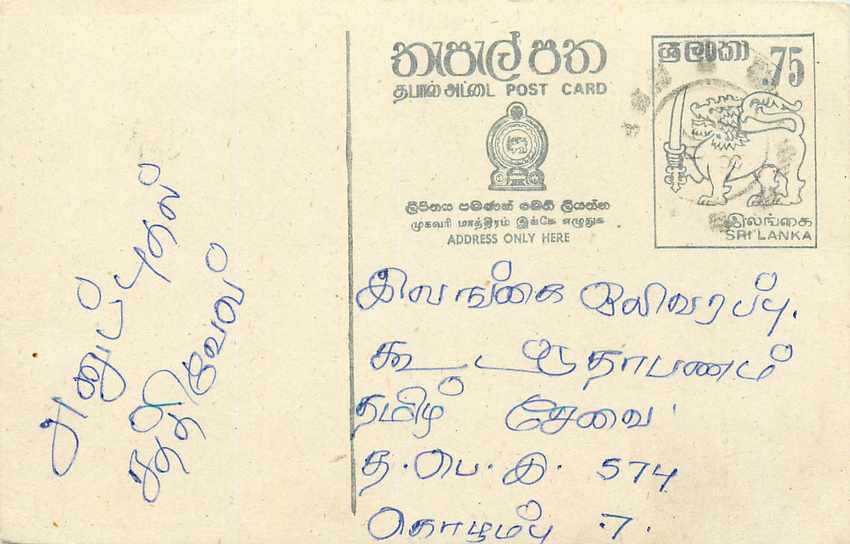 තැපැල් පත
தபால் அட்டை POST CARD
ශ්‍රී ලංකා
.75
இலங்கை
SRI LANKA
ලිපිනය පමණක් මෙහි ලියන්න
முகவரி மாத்திரம் இங்கே எழுதுக
ADDRESS ONLY HERE
அனுப்புதல்
சத்திவேல்
இலங்கை ஒலிபரப்பு.
கூட்டுத்தாபணம்
தமிழ் சேவை
த.பெ.இ. 574
கொழும்பு .7.